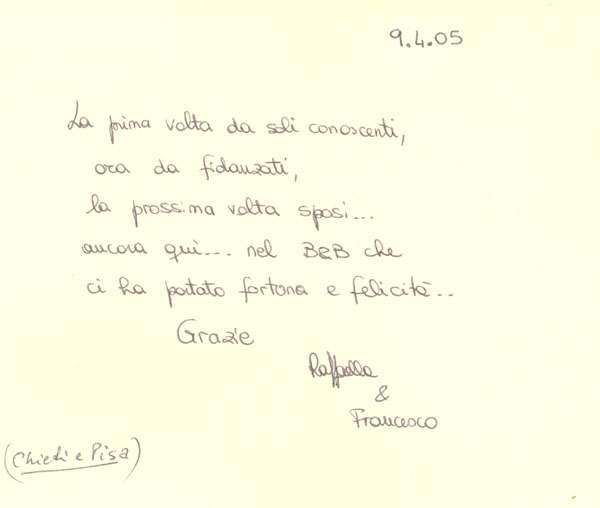 9.4.05
La prima volta da soli conoscenti,
ora da fidanzati,
la prossima volta sposi...
ancora qui... nel B&B che
ci ha portato fortuna e felicità..
Grazie
Raffaella
&
Francesco
(Chieti e Pisa)